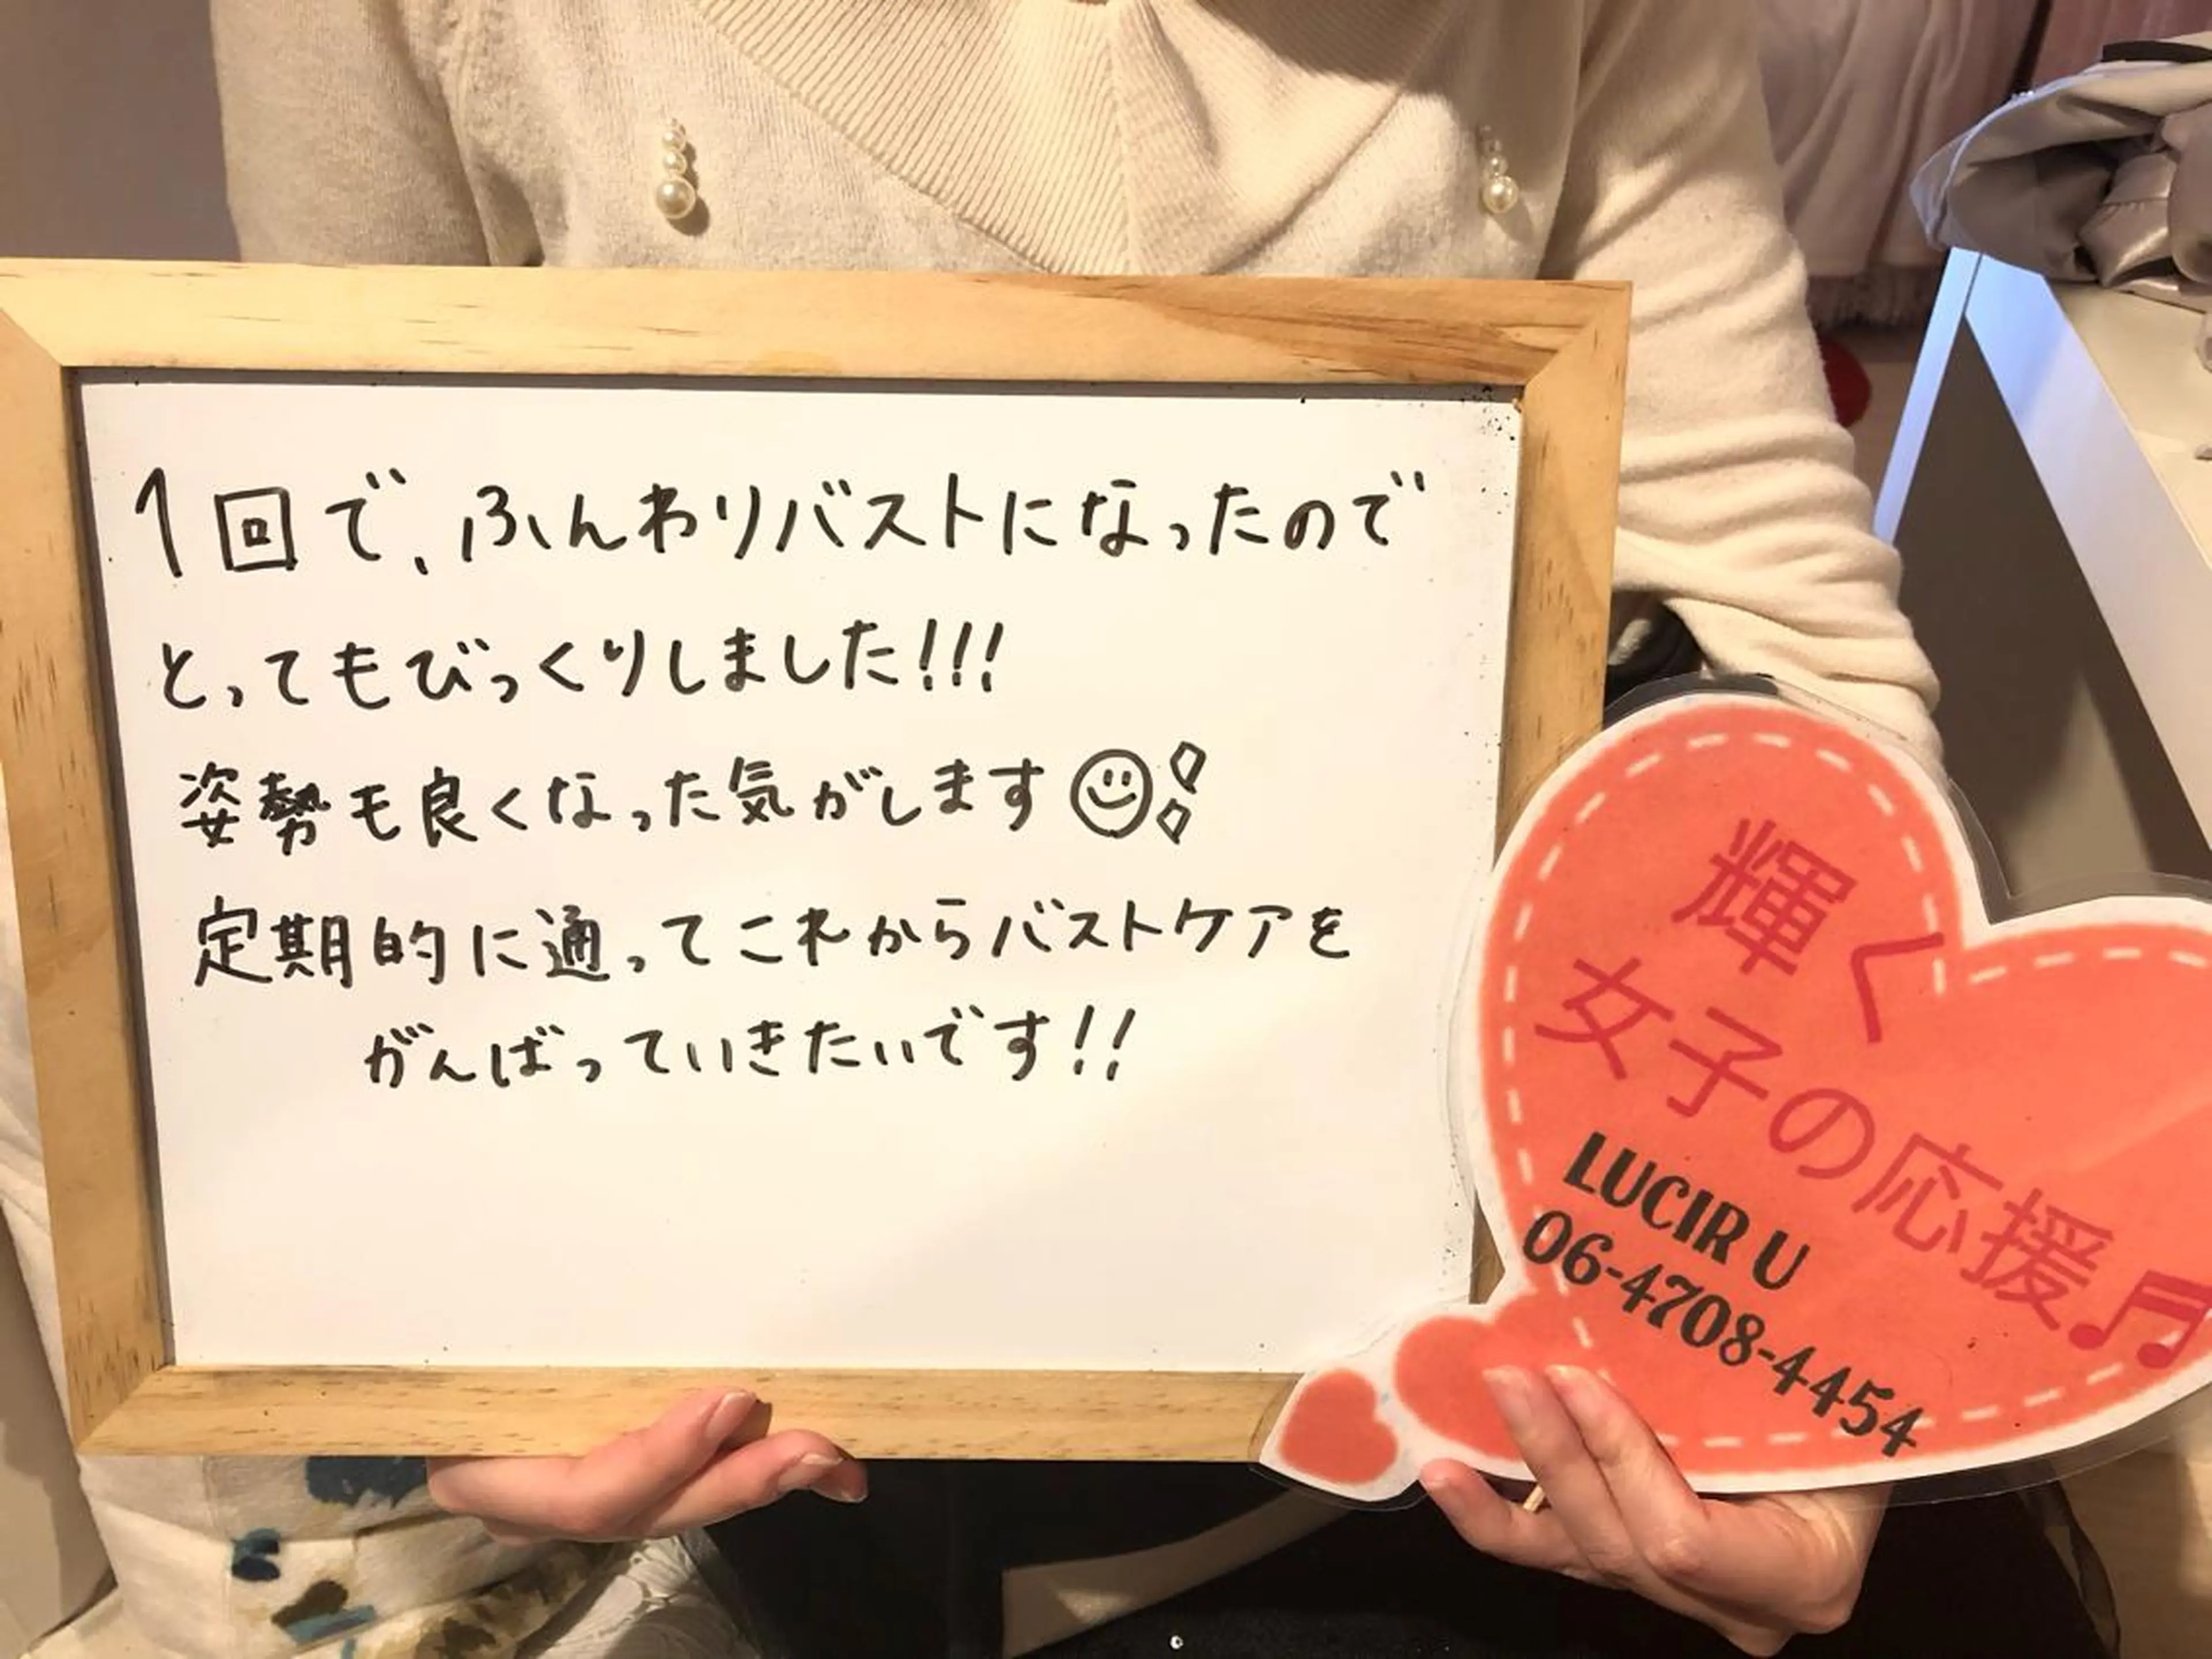 1回で、ふんわりバストになったので
とってもびっくりしました!!!
姿勢も良くなった気がします
定期的に通ってこれからバストケアを
がんばっていきたいです!!
輝く
女子の応援♬
LUCIR U
06-4708-4454